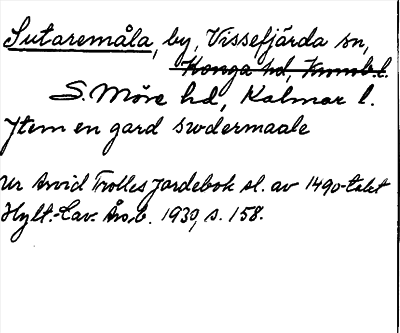 Sutaremåla, by, Vissefjärda sn,
Konga hd, Kronob. l.
S. Möre hd, Kalmar l.
Jtem en gard swdermaale
Ur Arvid Trolles Jordebok sl. av 1490-talet
Hylt.-Cav. Årsb. 1939, s. 158.